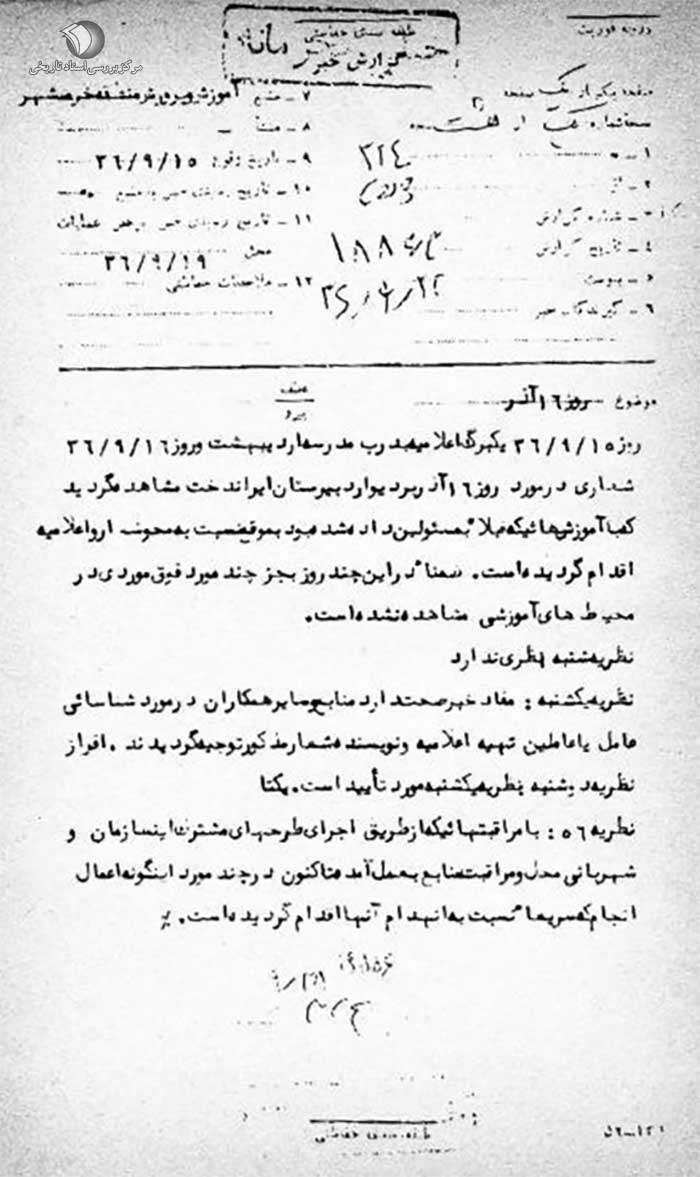 مرکز بررسی اسناد تاریخی
درجه فوریت
طبقه بندی حفاظتی
گزارش خبر
صفحه یکم از یک صفحه
نسخه شماره یک از هشت نسخه
۷ - منبع آموزش و پرورش منطقه خرمشهر
۸ - منشأ
۹ - تاریخ وقوع ۳۶/۹/۱۵
۱۰ - تاریخ رسیدن خبر به منبع
۱۱ - تاریخ رسیدن خبر به رهبر عملیات
محل ۳۶/۹/۱۹
۱۲ - ملاحظات حفاظتی
۱ - به ۳۲۴
۲ - از
۳ - شماره گزارش
۴ - تاریخ گزارش
۵ - پیوست
۶ - گیرندگان خبر
موضوع روز ۱۶ آذر
عطف
پیرو
روز ۳۶/۹/۱۵ یکبرگ اعلامیه درب مدرسه اردیبهشت و روز ۳۶/۹/۱۶
شعاری در مورد روز ۱۶ آذر بر دیوار دبیرستان ایراندخت مشاهده گردید
که با آموزش هائیکه قبلا به مسئولین داده شده بود بموقع نسبت به محو شعار و اعلامیه
اقدام گردیده است. ضمناً در این چند روز بجز چند مورد فوق موردی در
محیط های آموزشی مشاهده نشده است.
نظریه شنبه نظری ندارد
نظریه یکشنبه : مفاد خبر صحت دارد منابع و سایر همکاران در مورد شناسائی
عامل یا عاملین تهیه اعلامیه و نویسنده شعار مذکور توجیه گردیدند . افراز
نظریه دوشنبه نظریه یکشنبه مورد تأیید است. یکتا
نظریه ۵۶ : با مراقبتهائیکه از طریق اجرای طرحهای مشترک اینسازمان و
شهربانی محل و مراقبت منابع بعمل آمده تاکنون در چند مورد اینگونه اعمال
انجام که سریعا نسبت به انهدام آنها اقدام گردیده است.
طبقه بندی حفاظتی